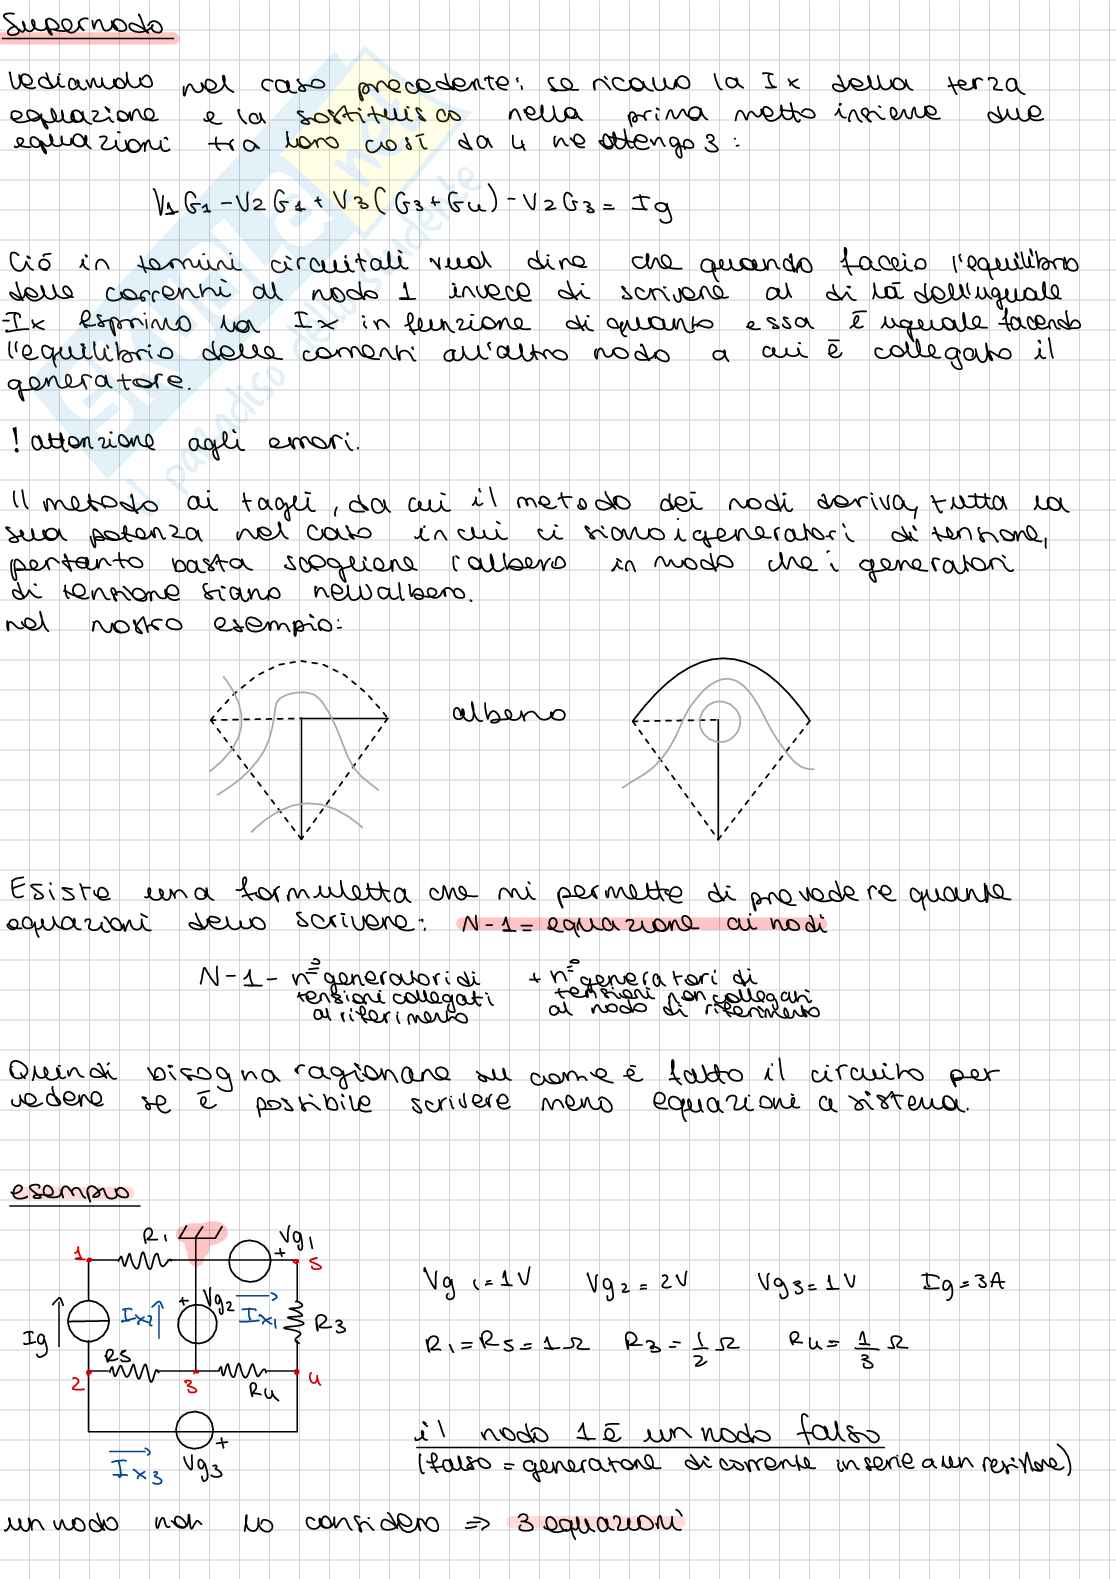 Supernodo
Vediamolo nel caso precedente: se ricavo la Ix della terza
equazione e la sostituisco nella prima metto insieme due
equazioni tra loro così da 4 ne ottengo 3:
V1G1 - V2G1 + V3(G3+G4) - V2G3 = Ig
Ciò in termini circuitali vuol dire che quando faccio l'equilibrio
delle correnti al nodo 1 invece di scrivere al di là dell'uguale
-Ix Esprimo la Ix in funzione di quanto essa è uguale facendo
l'equilibrio delle correnti all'altro nodo a cui è collegato il
generatore.
! attenzione agli errori.
Il metodo ai tagli, da cui il metodo dei nodi deriva, tutta la
sua potenza nel caso in cui ci siano i generatori di tensione,
pertanto basta scegliere l'albero in modo che i generatori
di tensione siano nell'albero.
nel nostro esempio:
albero
Esiste una formuletta che mi permette di prevedere quante
equazioni devo scrivere: N-1 = equazione ai nodi
N-1 - n° generatori di + n° generatori di
tensioni collegati tensioni non collegati
al riferimento al nodo di riferimento
Quindi bisogna ragionare su come è fatto il circuito per
vedere se è possibile scrivere meno equazioni a sistema.
esempio
R1 Vg1
1 + 5
Vg1=1V Vg2=2V Vg3=1V Ig=3A
Ig Ix2 + Vg2 Ix1 R3
R1=R5=1Ω R3=1/2 Ω R4=1/3 Ω
R5
2 3 R4 4
il nodo 1 è un nodo falso
+
(falso = generatore di corrente in serie a un resistore)
Ix3 Vg3
un nodo non lo considero ⇒ 3 equazioni
skuola.net
il paradiso dello studente